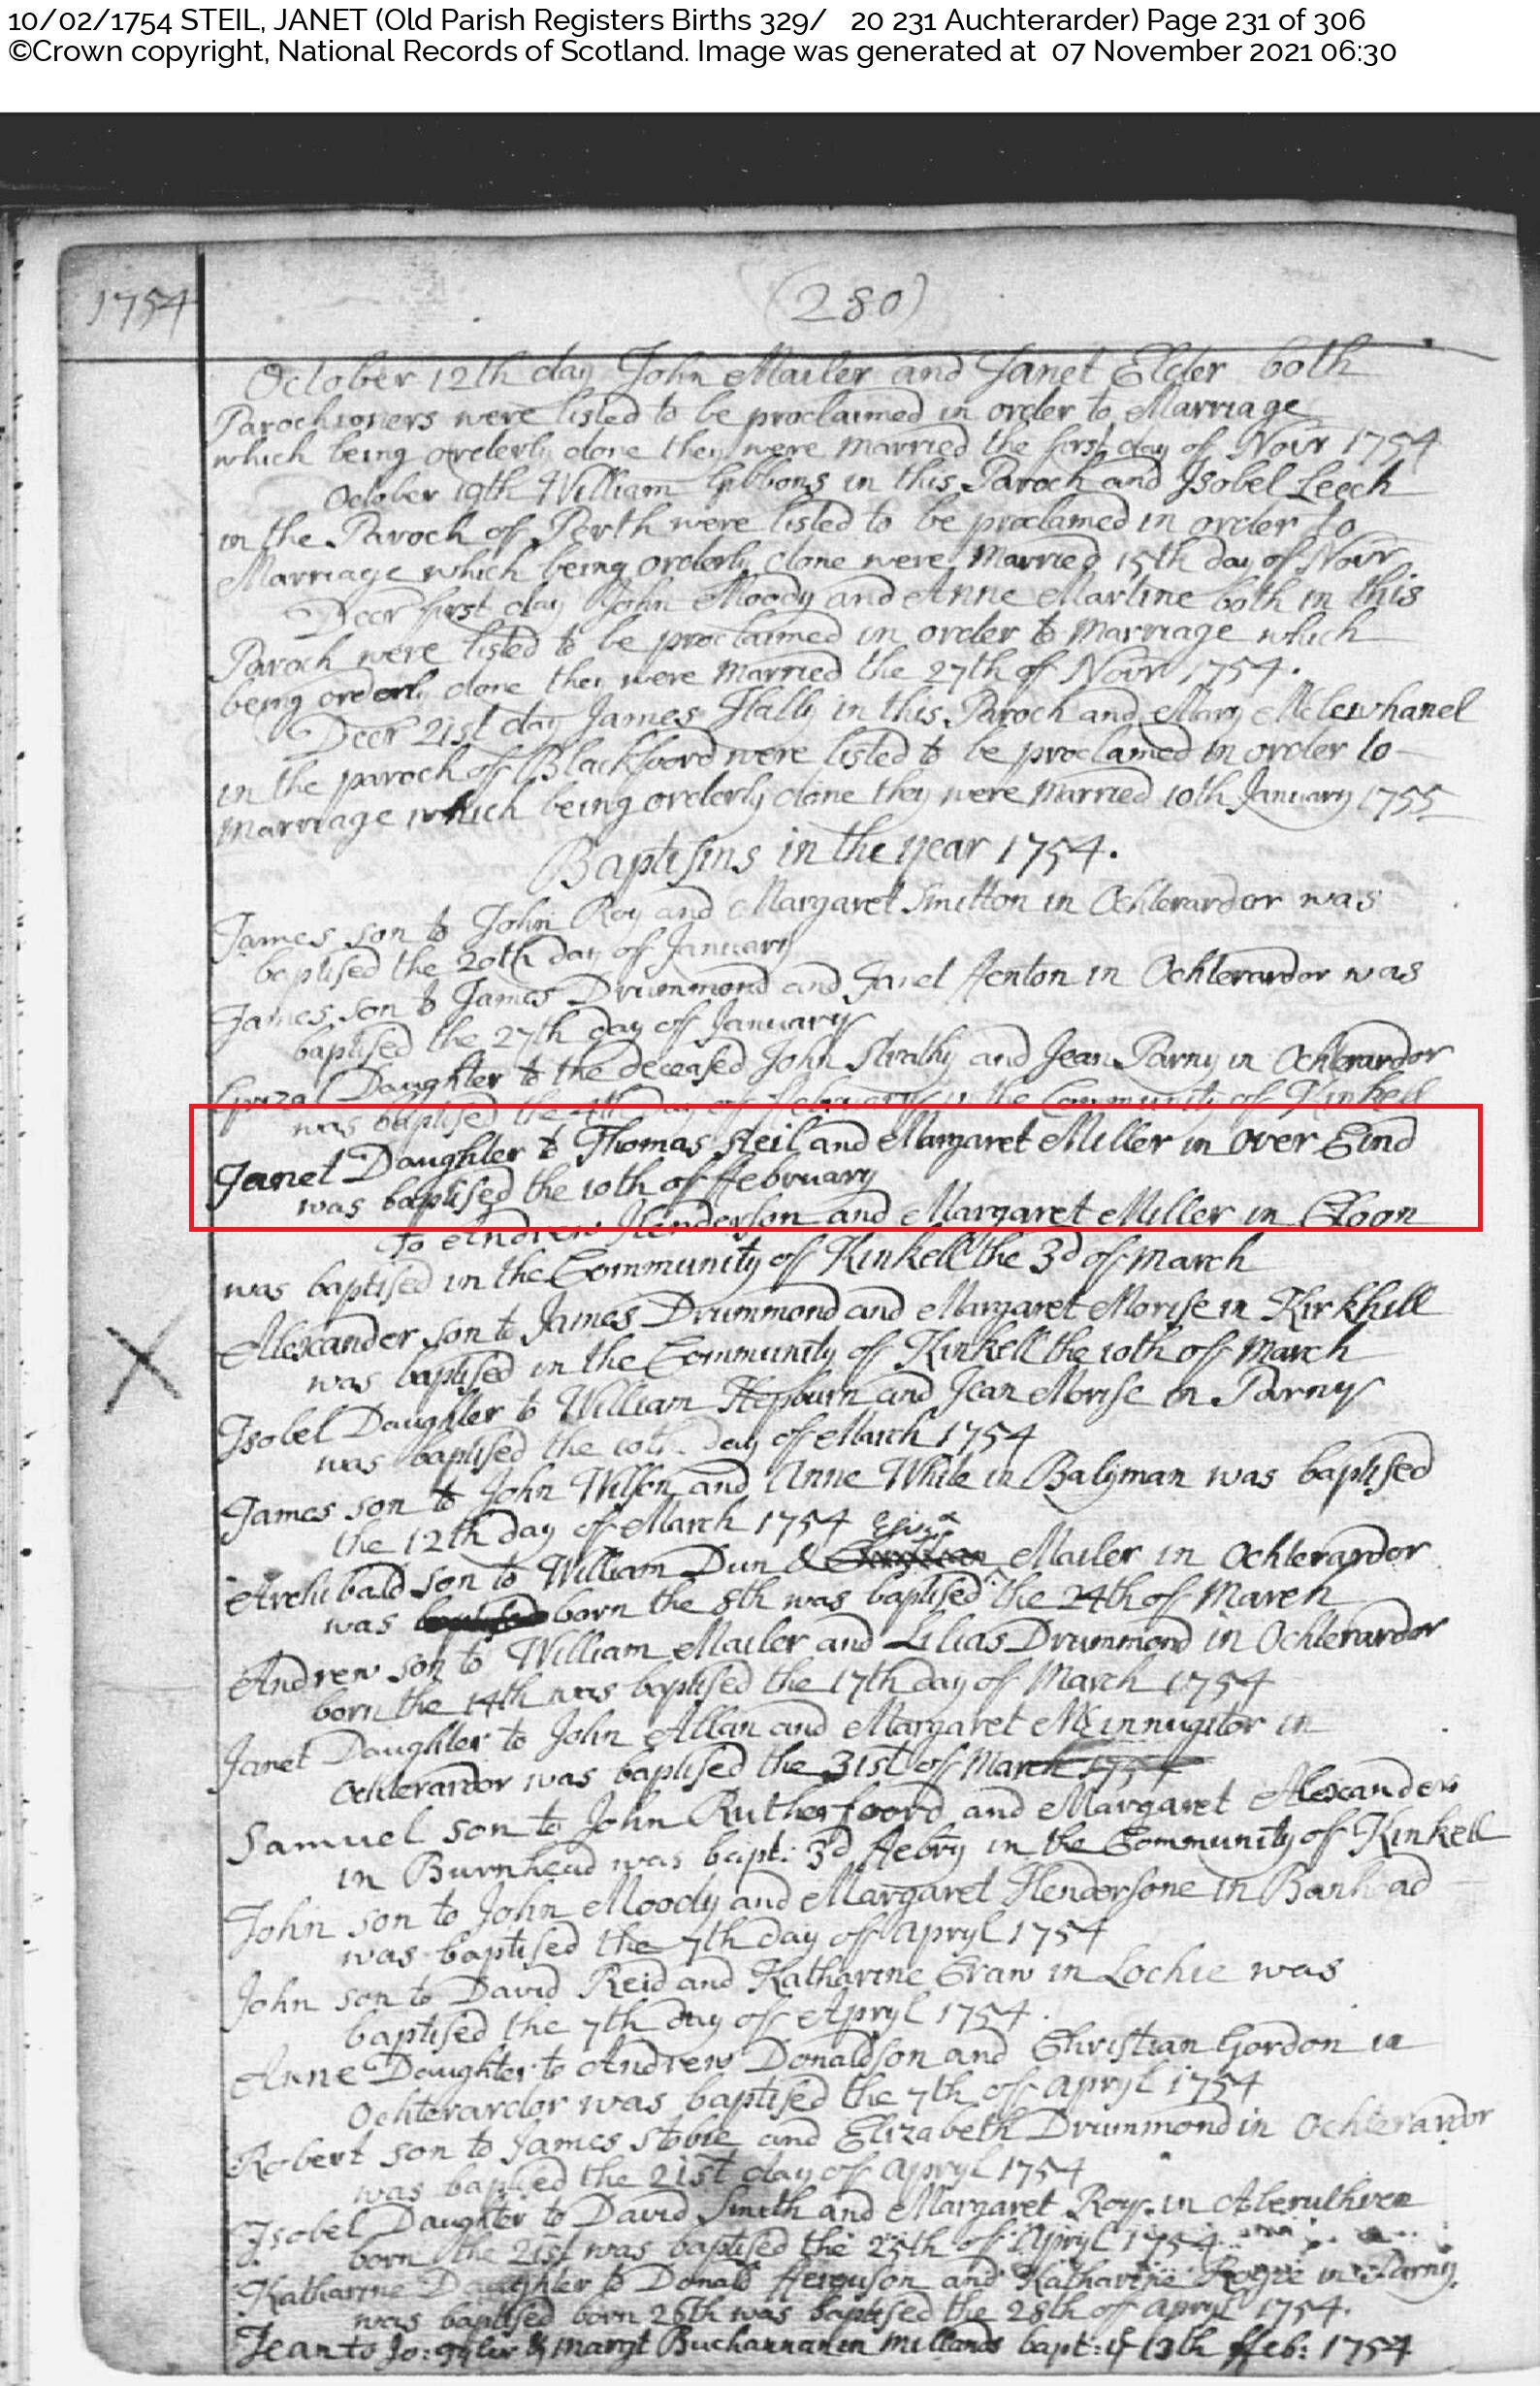 10/02/1754 STEIL, JANET (Old Parish Registers Births 329/ 20 231 Auchterarder) Page 231 of 306
©Crown copyright, National Records of Scotland. Image was generated at 07 November 2021 06:30
1754
(280)
October 12th day John Mailer and Janet Elder both
Parochioners were listed to be proclaimed in order to Marriage
which being orderly done they were married the first day of Novr 1754
October 19th William Gibbons in this Paroch and Isobel Leech
in the Paroch of Perth were listed to be proclamed in order to
Marriage which being orderly done were Married 15th day of Novr
Decr first day John Moody and Anne Martine both in this
Paroch were listed to be proclaimed in order to Marriage which
being orderly done they were married the 27th of Novr 1754.
Decr 21st day James Hally in this Paroch and Mary
in the paroch of Blackfoord were listed to be proclamed in order to
marriage which being orderly done they were married 10th January 1755
Baptisms in the year 1754.
James son to John Roy and Margaret Smitton in Ochterardor was
baptised the 20th day of January
James son to James Drummond and Janet fenton in Ochterardor was
baptised the 27th day of January
Daughter to the deceased John Strathy and Jean Parny in Ochterardor
was baptised the 4th day of february in the Community of Kinkell
Janet Daughter to Thomas Steil and Margaret Miller in Over Eind
was baptised the 10th of february
to Andrew Henderson and Margaret Miller in Cloon
was baptised in the Community of Kinkell the 3d of March
Alexander son to James Drummond and Margaret Morise in Kirkhill
was baptised in the Community of Kinkell the 10th of March
Isobel Daughter to William Hepburn and Jean Morise in Parny
was baptised the 10th day of March 1754
James son to John Wilson and Anne White in Balyman was baptised
the 12th day of March 1754
Archibald son to William Dun & Mailer in Ochterardor
was born the 8th was baptised the 24th of March
Andrew son to William Mailer and Lilias Drummond in Ochterardor
born the 14th was baptised the 17th day of March 1754
Janet Daughter to John Allan and Margaret in
Ochterardor was baptised the 31st of March 1754
Samuel son to John Rutherfoord and Margaret Alexander
in Burnhead was bapt: 3d febry in the Community of Kinkell
John son to John Moody and Margaret Hendersone in Banhead
was baptised the 7th day of Apryl 1754
John son to David Reid and Katharine Graw in Lochie was
baptised the 7th day of Apryl 1754.
Anne Daughter to Andrew Donaldson and Christian Gordon in
Ochterardor was baptised the 7th of Apryl 1754
Robert son to James Stobie and Elizabeth Drummond in Ochterardor
was baptised the 21st day of Apryl 1754
Isobel Daughter to David Smith and Margaret Roy in Aberuthven
born the 21st was baptised the 25th of Apryl 1754
Katharine Daughter to Donald fferguson and Katharine in Parny
was baptised born 26th was baptised the 28th of Apryl 1754.
Jean to Jo: & Margt Buchannan in Millands bapt: 13th ffeb: 1754